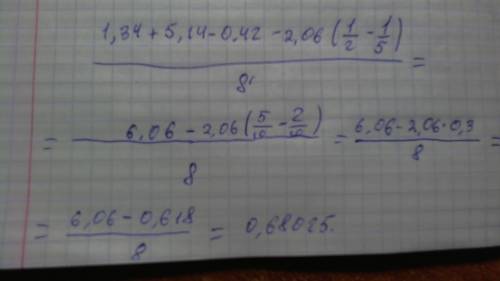 1,34 + 5,14 - 0,42 - 2,06 (1/2 - 1/5) / 8 =
= 6,06 - 2,06 (5/10 - 2/10) / 8 = 6,06 - 2,06 · 0,3 / 8 =
= 6,06 - 0,618 / 8 = 0,68025.